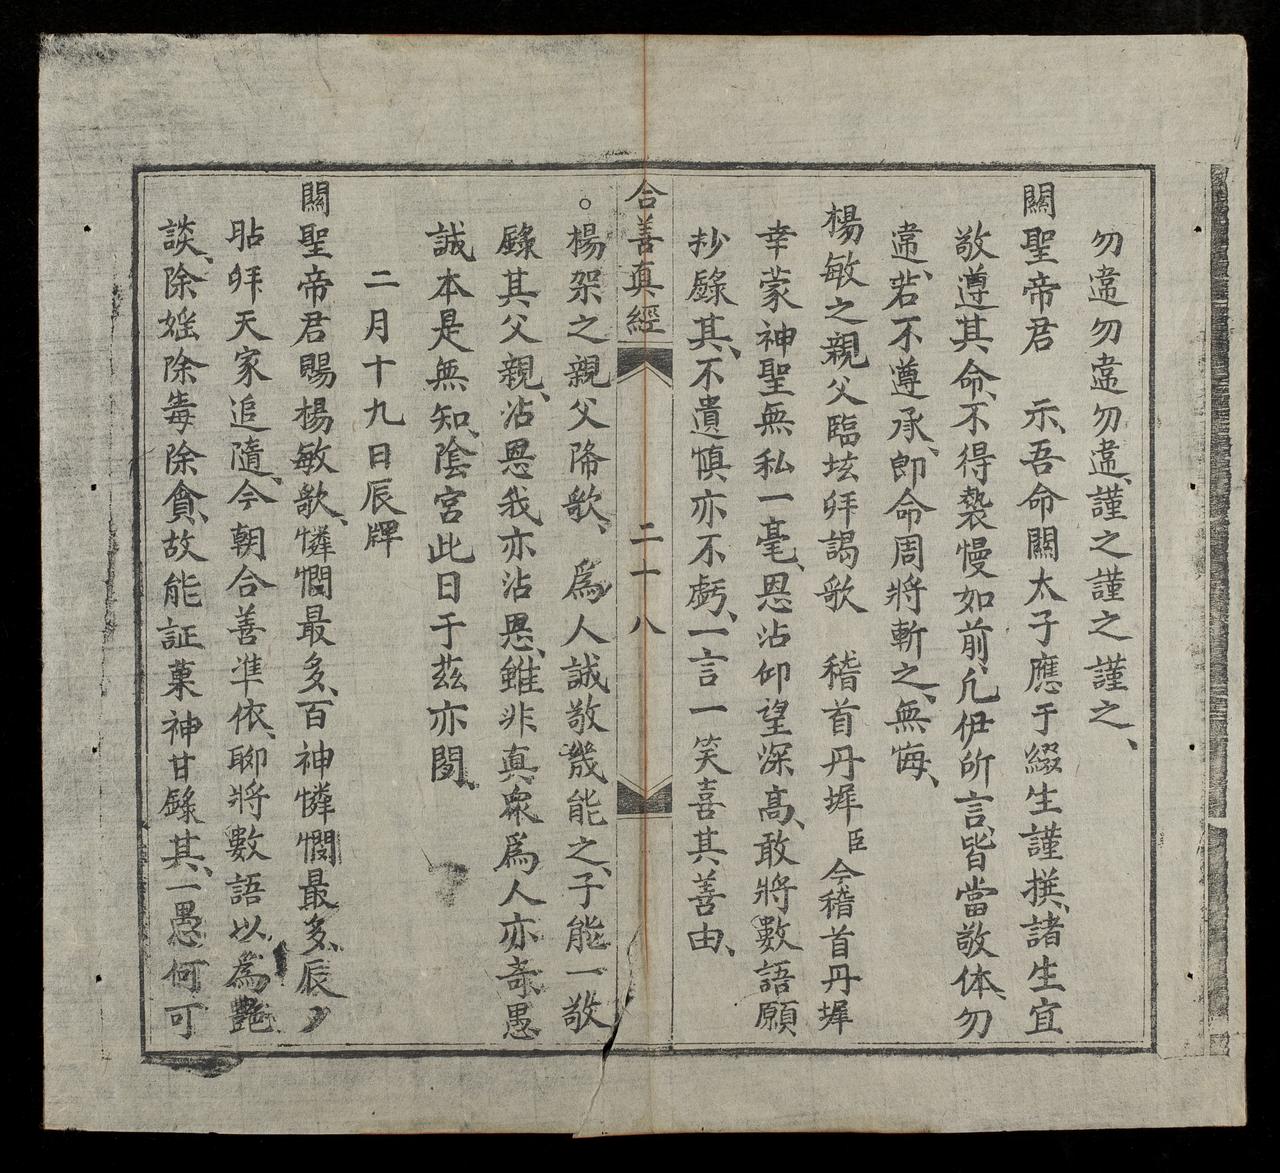 勿違勿違勿違、謹之謹之謹之、
關聖帝君　示、吾命關太子應于綴生謹撰、諸生宜
敬遵其命、不得褻慢如前、凡伊所言、皆當敬体、勿
違、若不遵承、即命周將斬之、無悔、
楊敏之親父臨坛拜謁歌　稽首丹墀臣今稽首丹墀
幸蒙神聖無私一毫、恩沾仰望深高、敢將數語願
抄錄其、不遺慎亦不虧、一言一笑喜其善由、
合善真經　二十八
○楊架之親父降歌、　為人誠敬幾能之、子能一敬
錄其父親、沾恩我亦沾恩、雖非真衆為人亦奇愚
誠本是無知、陰宮此日于茲亦閱、
二月十九日辰牌
關聖帝君賜楊敏歌、憐憫最多、百神憐憫最多、辰
貼拜天家追隨、今朝合善準依、聊將數語以為艷
談、除婬除毒除貪、故能証菓神甘錄其、一愚何可